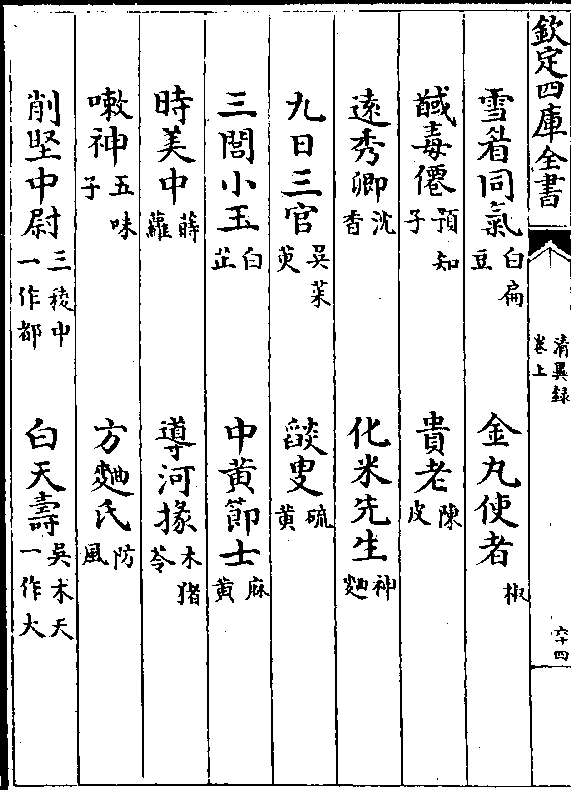 欽定四庫全書
清異録
卷上
六十四
雪眉同氣 白扁豆 金丸使者 椒
馘毒僊 預知子 貴老 陳皮
遠秀卿 沈香 化米先生 神麯
九日三官 吳茱萸 燄叟 硫黄
三閭小玉 白芷 中黄節士 麻黄
時美中 蒔蘿 導河掾 木猪苓
嗽神 五味子 方麯氏 防風
削堅中尉 三稜中一作都 白天壽 吳术天一作大